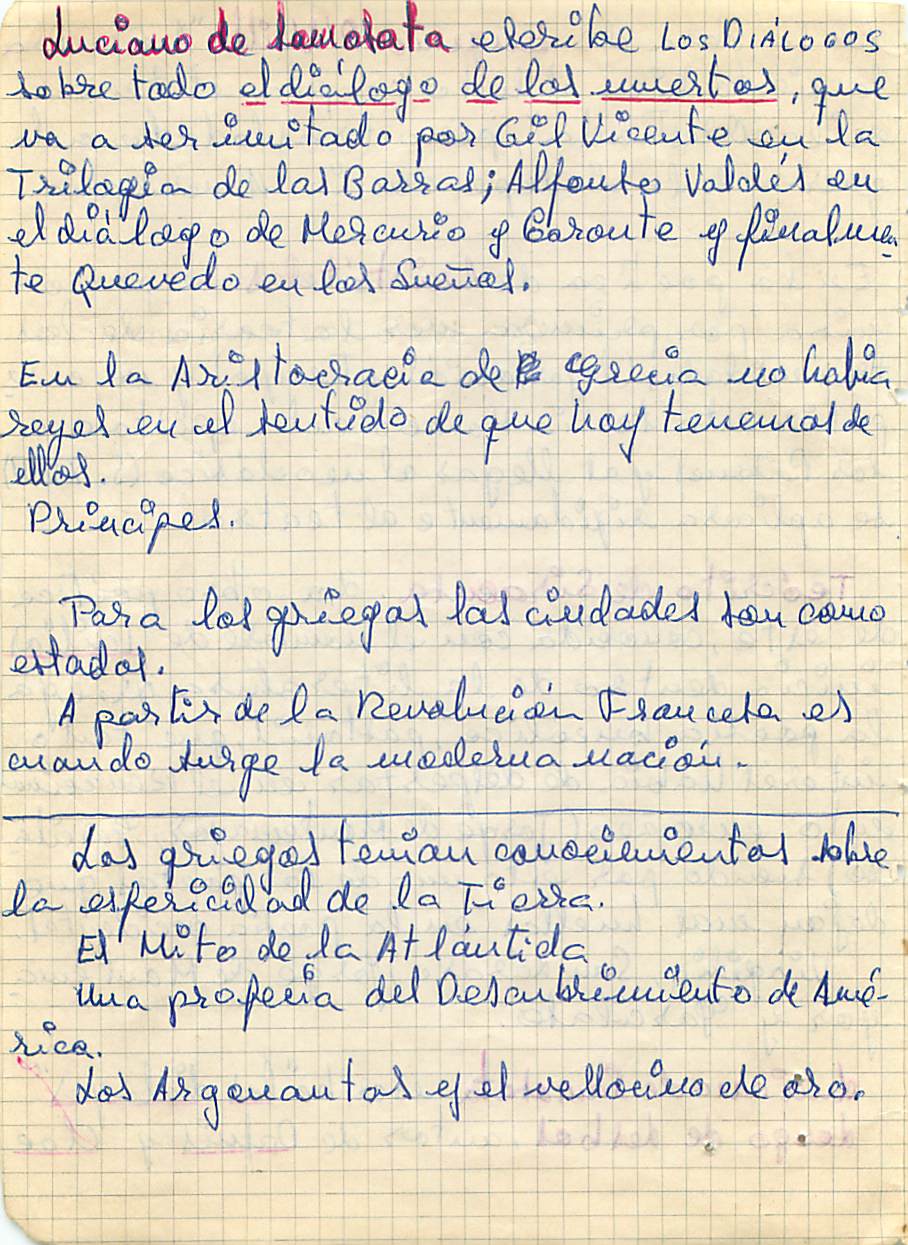 Luciano de Samosata escribe LOS DIÁLOGOS
sobre todo el diálogo de los muertos, que
va a ser imitado por Gil Vicente en la
Trilogía de las Barcas; Alfonso Valdés en
el diálogo de Mercurio y Caronte y finalmen-
te Quevedo en los Sueños.
En la Aristocracia de Grecia no había
reyes en el sentido de que hoy tenemos de
ellos.
Príncipes.
Para los griegos las ciudades son como
estados.
A partir de la Revolución Francesa es
cuando surge la moderna nación.
Los griegos tenían conocimientos sobre
la esfericidad de la Tierra.
El Mito de la Atlántida
Una profecía del Descubrimiento de Amé-
rica.
Los Argonautas y el vellocino de oro.